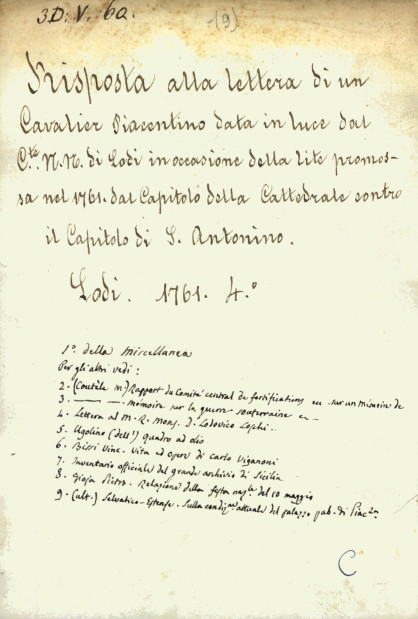 3D. V. 60.
19)
Risposta alla lettera di un
Cavalier Piacentino data in luce dal
Cte. N. N. di Lodi in occasione della lite promos-
sa nel 1761. dal Capitolo della Cattedrale contro
il Capitolo di S. Antonino.
Lodi. 1761. 4.º
1º. della Miscellanea
Per gli altri vedi:
2. (Coutèle m.) Rapport du Comité central de fortifications sur un mémoire de
3. ——— . mémoire sur la guerre souterraine
4. Lettera al M. R. Mons. D. Lodovico Loschi.
5. Ugolino (dell') quadro ad olio
6. Bissi Vinc. Vita ed opere di Carlo Viganoni
7. Inventario officiale del grande archivio di Sicilia
8. Gioja Pietro. Relazione della festa nazle del 10 maggio
9. (ult.) Selvatico-Estense. Sulla condizne attuale del palazzo pub. di Piac
C